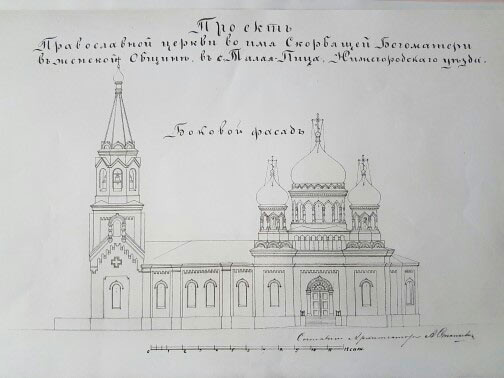 Проектъ
Православной церкви во имя Скорбящей Богоматери
въ женской Общинѣ, въ с. Малая-Пица, Нижегородскаго уѣзда.
Боковой фасадъ
Составилъ Архитекторъ